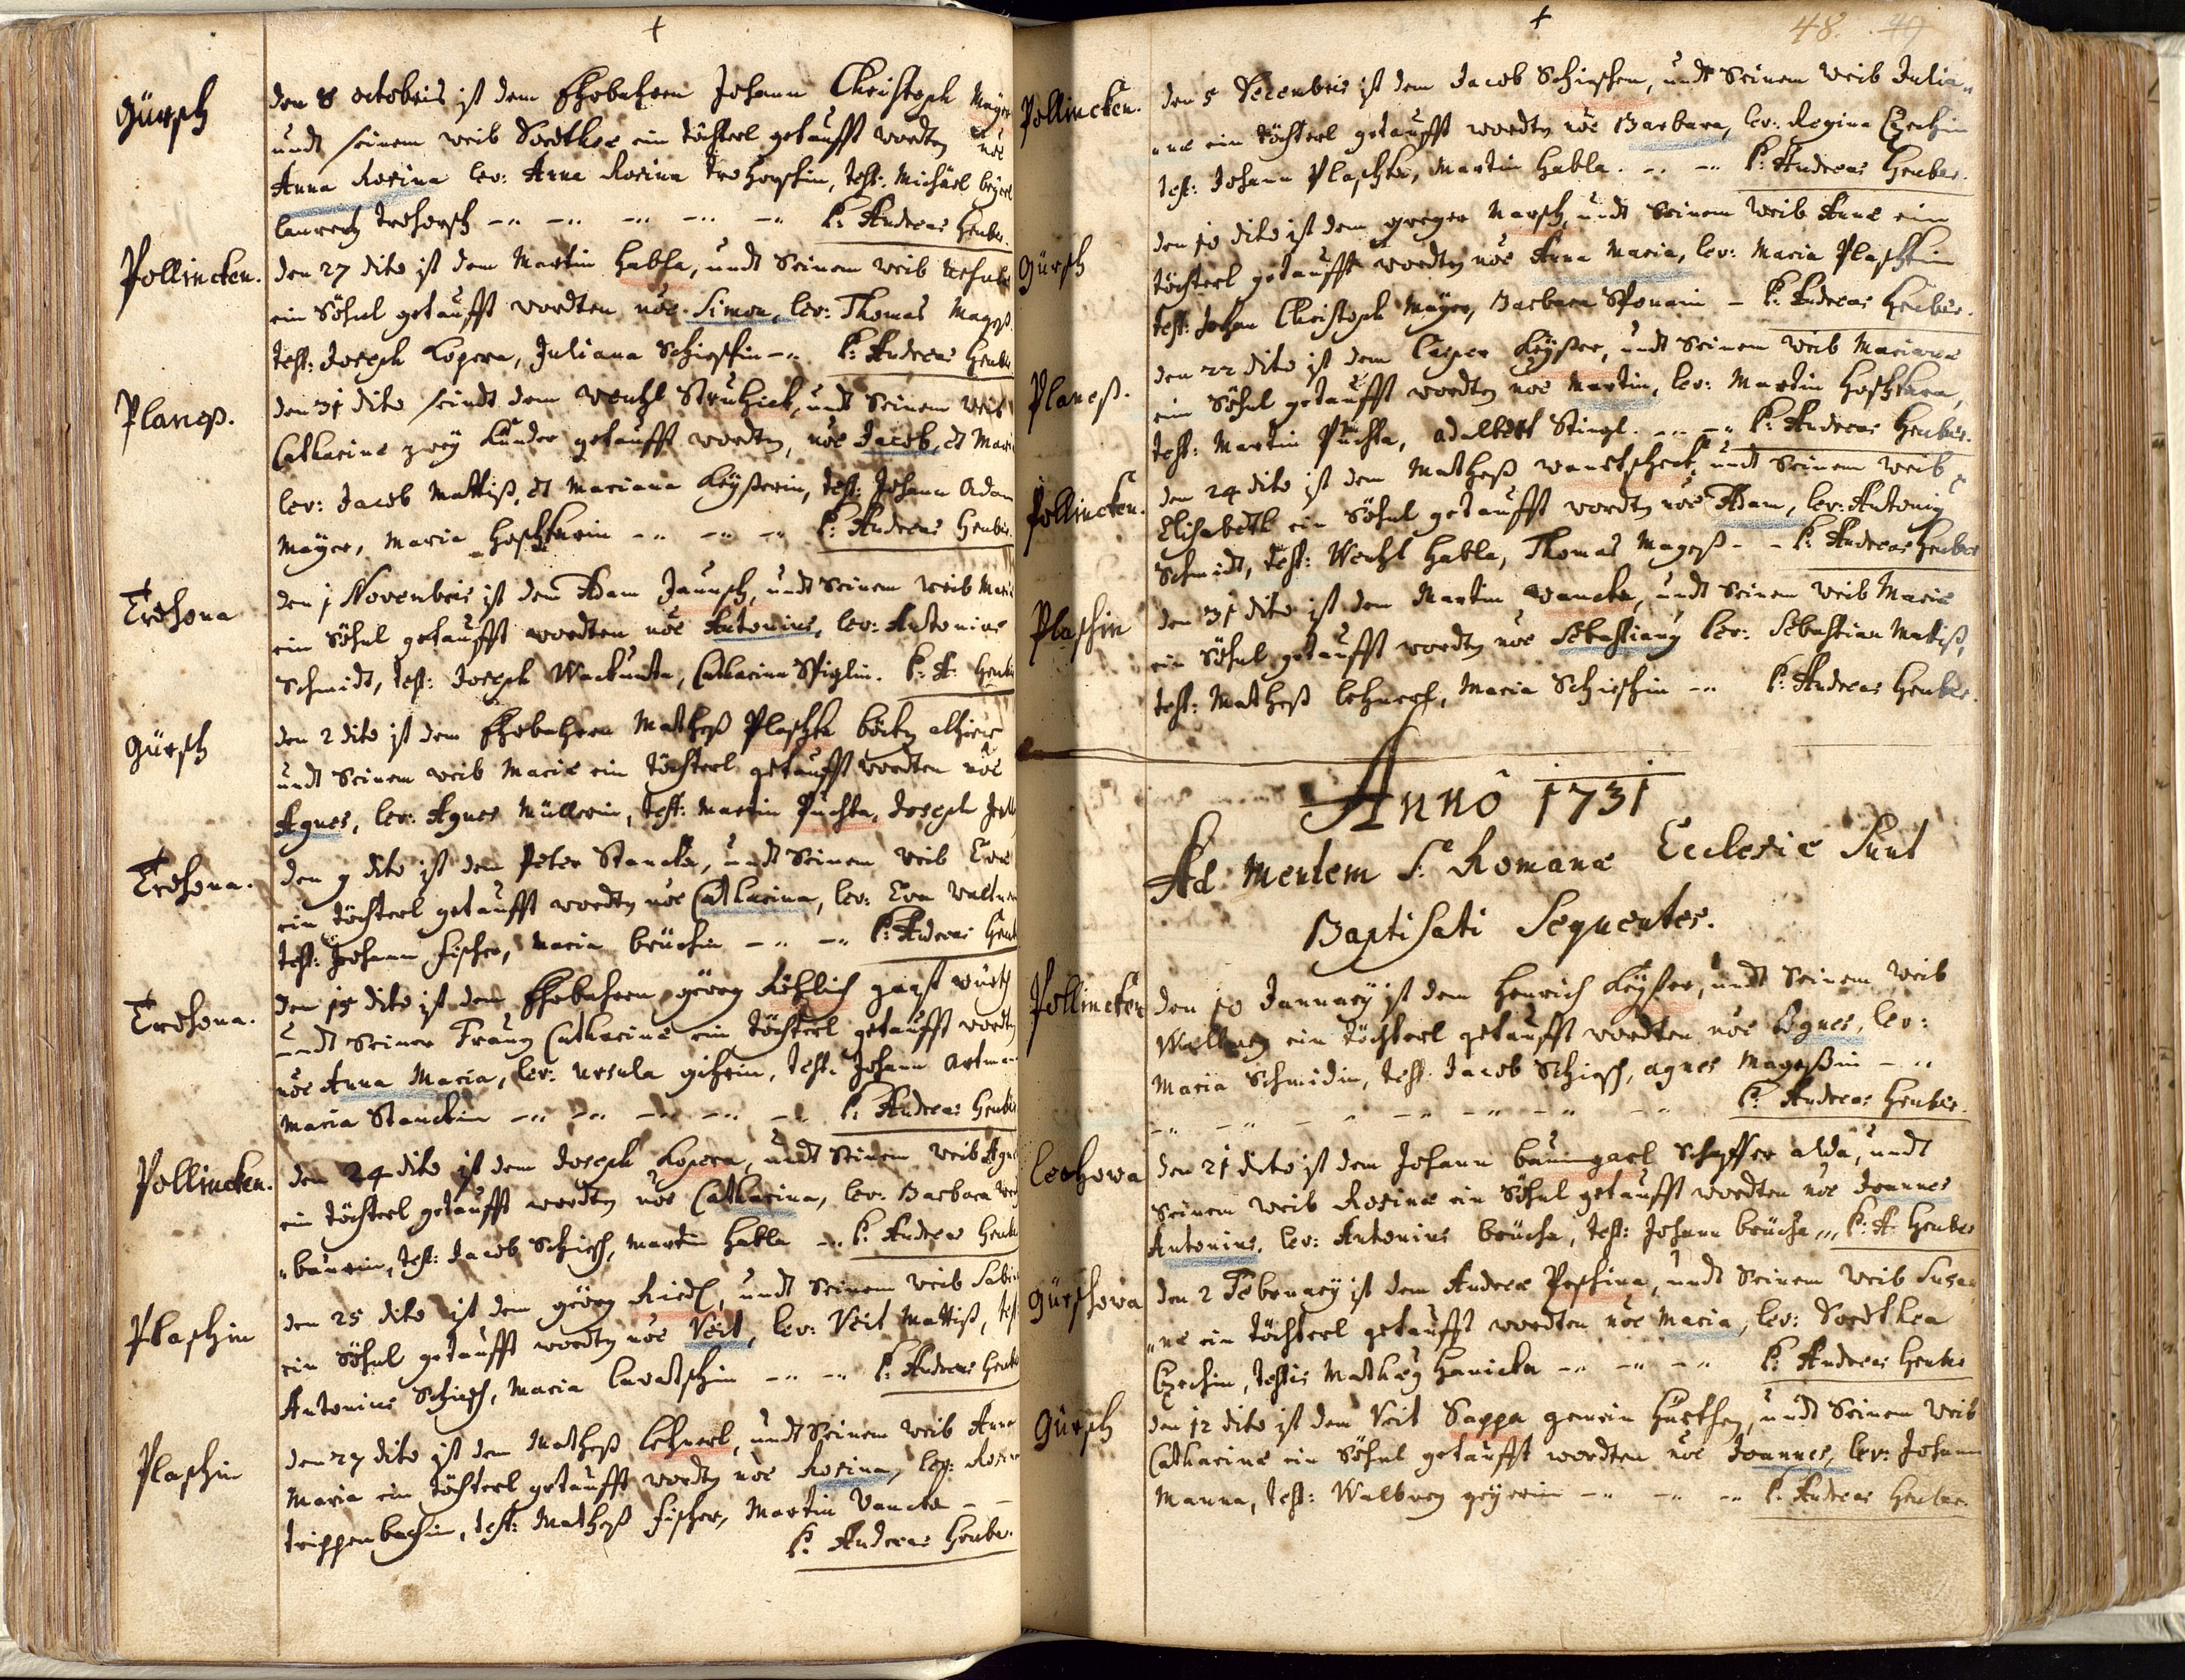 Gürsch
den 8 octobris ist dem Ehrbahren Johann Christoph Mäyer
undt seinem weib Dordthee ein töchterl getaufft wordten noe
Anna Rosina lev: Anna Rosina test: Michäel
laurentz P: Andreas Heuber.
Pollincken.
den 27 dito ist dem Martin Habla, undt Seinem weib
ein Söhnl getaufft wordten noe Simon, lev: Thomas Mageß.
test: Joseph Kopera, Juliana Schieschin P: Andreas Heuber
Planeß.
den 31 dito seindt dem wentzl Struhick, undt Seinem weib
Catharine zwey Kinder getaufft wordten, noe Jacob, et Mari
lev: Jacob Mattiß, et Mariana Keyßerin, test: Johann Adam
Mäyer, Maria P: Andreas Heuber.
Trohona
den 1 Novembris ist dem Adam Jannsch, undt Seinem weib Marie
ein Söhnl getaufft wordten noe Antonius, lev: Antonius
Schmidt, test: Joseph Catharina Spiglin. P: A: Heuber
Gürsch
den 2 dito ist dem Ehrbahren Matheß Plaschka alhier
undt Seinem weib Marie ein töchterl getaufft wordten noe
Agnes, lev: Agnes Müllerin, test: Martin Puchta, Joseph
Trohona.
den 9 dito ist dem Peter Stancka, undt Seinem weib Eva
ein töchterl getaufft wordten noe Catharina, lev: Eva
test: Johann Fischer, Maria brüchin P: Andreas Heuber
Trohona.
den 15 dito ist dem Ehrbahren Georg gast würth
undt Seiner Frauen Catharine ein töchterl getaufft wordten
noe Anna Maria, lev: Ursula test: Johann Artman
Maria Stanckin P: Andreas Heuber
Pollincken.
den 24 dito ist dem Joseph Kopera, undt Seinem weib Agnes
ein töchterl getaufft wordten noe Catharina, lev: Barbara
baurin, test: Jacob Schiesch, Martin Habla P: Andreas Heuber
Plaschin
den 25 dito ist dem Georg Riedl, undt Seinem weib Sabin
ein Söhnl getaufft wordten noe Veit, lev: Veit Mattiß, test
Antonius Schiesch, Maria P: Andreas Heuber
Plaschin
den 27 dito ist dem Matheß Lehnerl, undt Seinem weib Anna
Maria ein töchterl getaufft wordten noe Rosina, lev: Rosina
trippenbachin, test: Matheß Fischer, Martin Vancka
P: Andreas Heuber.
48. 49
Pollincken.
den 5 Decembris ist dem Jacob Schieschen, undt Seinem weib Julia„
„ne ein töchterl getaufft wordten noe Barbara, lev: Regina
test: Johann Plaschka, Martin Habla. P: Andreas Heuber.
Gürsch
den 10 dito ist dem greger Marsch, undt Seinem weib Anne ein
töchterl getaufft wordten noe Anna Maria, lev: Maria Plaschkin
test: Johan Christoph Mäyer, Barbara P: Andreas Heuber.
Planeß.
den 22 dito ist dem Casper Keyßer, undt Seinem weib Mariane
ein Söhnl getaufft wordten noe Martin, lev: Martin
test: Martin Puchta, Adalbert Stingl. P: Andreas Heuber.
Pollincken.
den 24 dito ist dem Matheß undt Seinem weib
Elisabeth ein Söhnl getaufft wordten noe Adam, lev: Antonius
Schmidt, test: Wentzl Habla, Thomas Mageß P: Andreas Heuber
Plaschin
den 31 dito ist dem Martin Vancka, undt Seinem weib Marie
ein Söhnl getaufft wordten noe Sebastianus lev: Sebastian Mattiß,
test: Matheß Lehnerl, Maria Schieschin P: Andreas Heuber.
Annô 1731
Ad Mentem S: Romanæ Ecclesiæ Sunt
Baptisati Sequentes.
Pollincken
den 10 Januarÿ ist dem Henrich Keyßer, undt Seinem weib
Walburg ein töchterl getaufft wordten noe Agnes, lev:
Maria Schmidin, test: Jacob Schiesch, Agnes Mageßin
P: Andreas Heuber.
Lochowa
den 21 dito ist dem Johann Baumgarl Schaffer alda, undt
Seinem weib Rosine ein Söhnl getaufft wordten noe Joannes
Antonius, lev: Antonius brücha, test: Johann brücha P: A: Heuber
Gürschowa
den 2 Februarÿ ist dem Andrea Peschina, undt Seinem weib Susa„
„ne ein töchterl getaufft wordten noe Maria, lev: Dordthea
testis Matheg Hanicka P: Andreas Heuber
Gürsch
den 12 dito ist dem Veit Sappa gemein Hürthen, undt Seinem weib
Catharine ein Söhnl getaufft wordten noe Joannes, lev: Johann
Manna, test: Walburg P: Andreas Heuber.